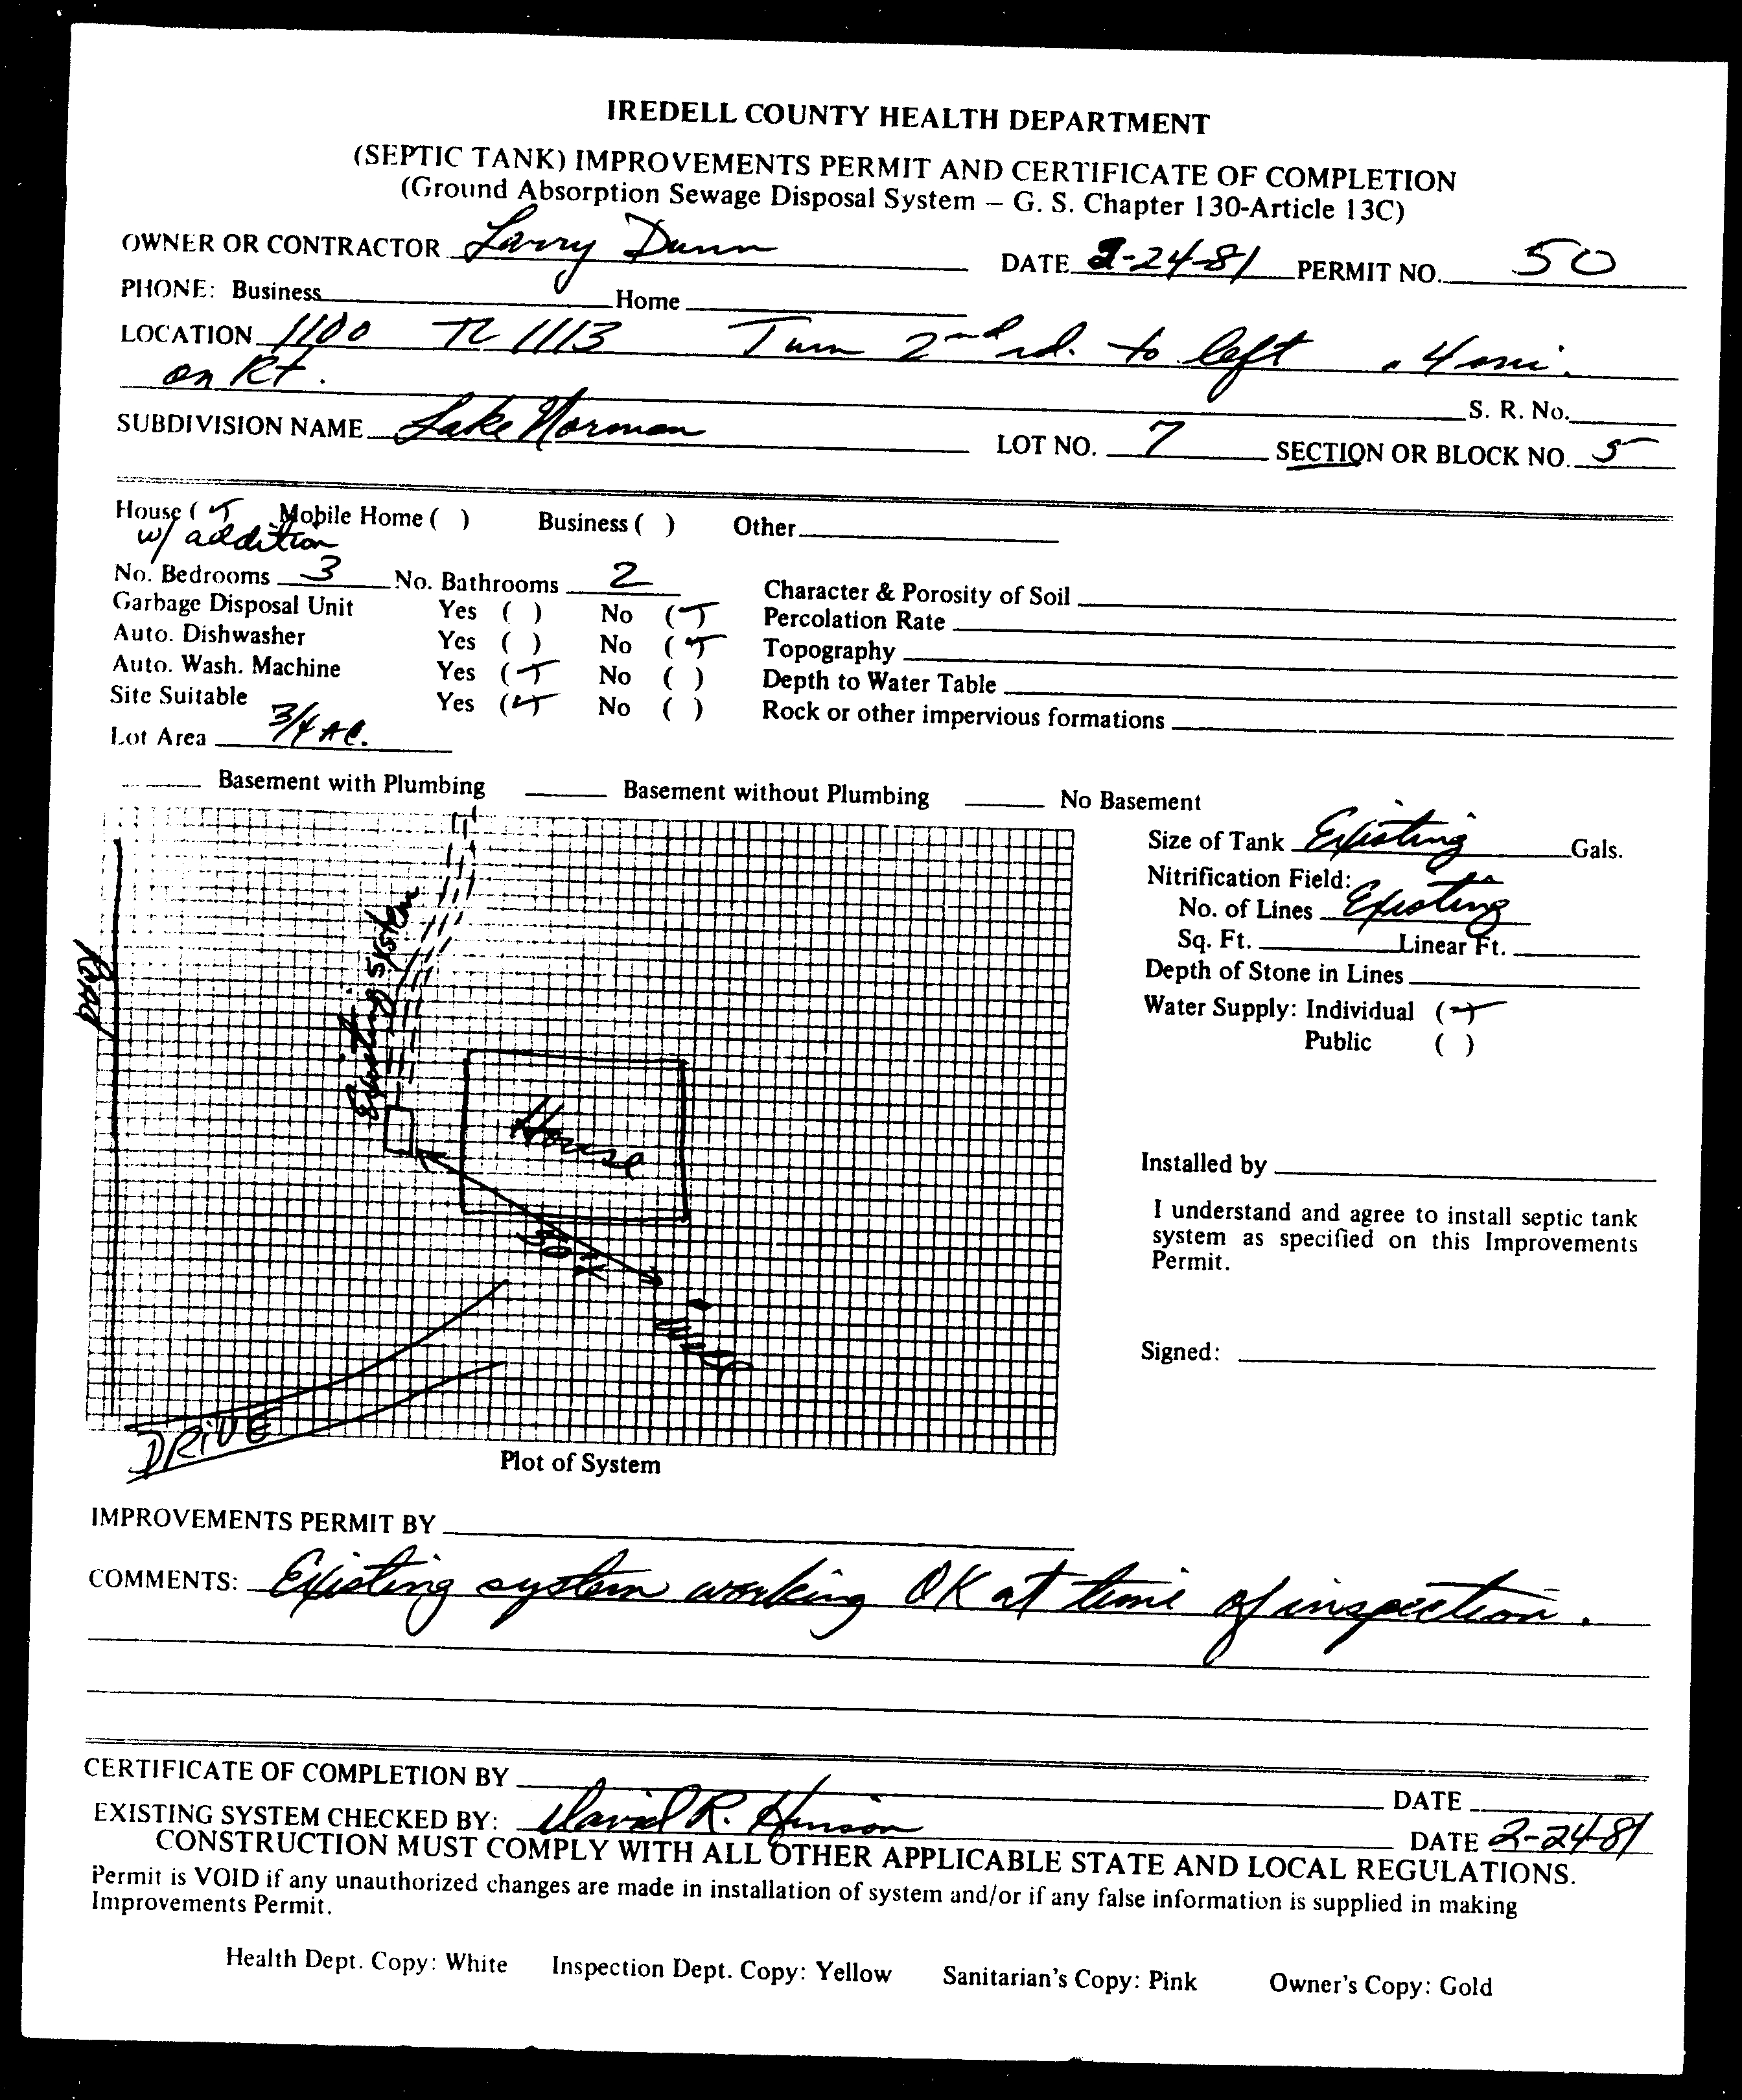 IREDELL COUNTY HEALTH DEPARTMENT
(SEPTIC TANK) IMPROVEMENTS PERMIT AND CERTIFICATE OF COMPLETION
(Ground Absorption Sewage Disposal System – G. S. Chapter 130-Article 13C)
OWNER OR CONTRACTOR Larry Dunn DATE 2-24-81 PERMIT NO. 50
PHONE: Business Home
LOCATION 1100 TL 1113 Turn 2nd rd. to left .4 mi.
on Rt.
S. R. No.
SUBDIVISION NAME Lake Norman LOT NO. 7 SECTION OR BLOCK NO. 5
House ( ) Mobile Home ( ) Business ( ) Other
w/ addition
No. Bedrooms 3 No. Bathrooms 2 Character & Porosity of Soil
Garbage Disposal Unit Yes ( ) No (✓) Percolation Rate
Auto. Dishwasher Yes ( ) No (✓) Topography
Auto. Wash. Machine Yes (✓) No ( ) Depth to Water Table
Site Suitable Yes (✓) No ( ) Rock or other impervious formations
Lot Area 3/4 AC.
Basement with Plumbing Basement without Plumbing No Basement
Size of Tank Existing Gals.
Nitrification Field:
No. of Lines Existing
Sq. Ft. Linear Ft.
Depth of Stone in Lines
Water Supply: Individual (✓)
Public ( )
Road
Existing system
House
Well
DRIVE
Installed by
I understand and agree to install septic tank
system as specified on this Improvements
Permit.
Signed:
Plot of System
IMPROVEMENTS PERMIT BY
COMMENTS: Existing system working OK at time of inspection.
CERTIFICATE OF COMPLETION BY DATE
EXISTING SYSTEM CHECKED BY: David R. Hinson DATE 2-24-81
CONSTRUCTION MUST COMPLY WITH ALL OTHER APPLICABLE STATE AND LOCAL REGULATIONS.
Permit is VOID if any unauthorized changes are made in installation of system and/or if any false information is supplied in making
Improvements Permit.
Health Dept. Copy: White Inspection Dept. Copy: Yellow Sanitarian's Copy: Pink Owner's Copy: Gold